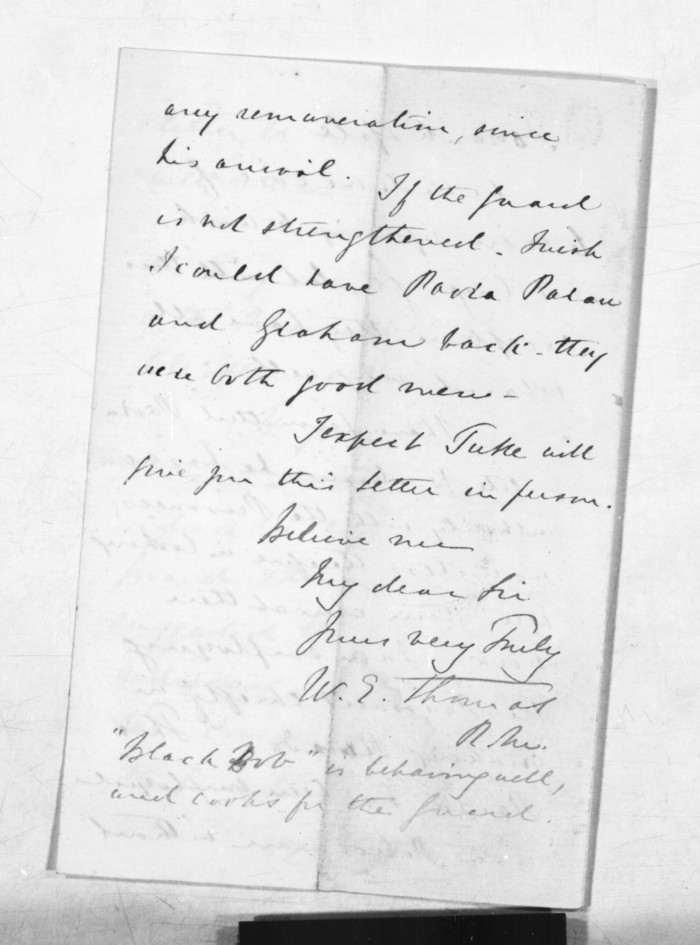 any remuneration, since
his arrival. If the Guard
is not strengthened - I wish
I could have Paora Patau
and Graham back - they
were both good men -
I expect Tuke will
give you this letter in person.
Believe me
My dear Sir
Yours very Truly
W. E. Thomas
R.M.
"Black Bob" is behaving well,
and cooks for the Guard.